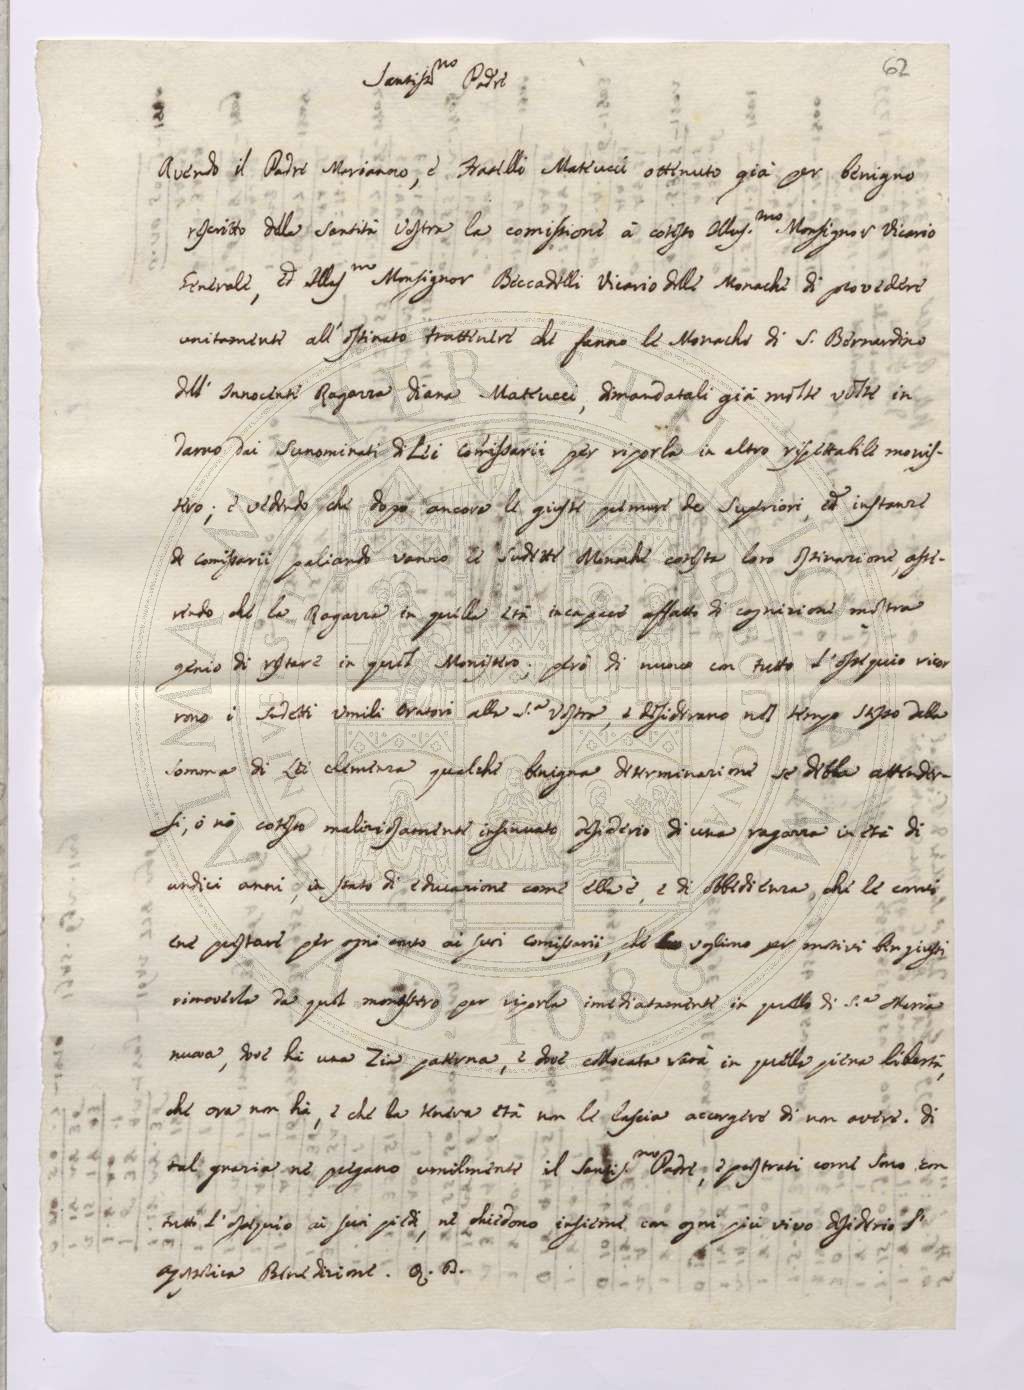 62
Santiss.mo Padre
Avendo il Padre Marianno, e Fratelli Mateucci ottenuto già per benigno
rescritto della Santità Vostra la comissione à cotesto Illus.mo Monsignor Vicario
Generale, ed Illus.mo Monsignor Beccadelli Vicario delle Monache di provedere
unitamente all' ostinato trattenere che fanno le Monache di S. Bernardino
dell' Innocente Ragazza Diana Mateucci, dimandatali già molte volte in
darno dai sunominati di Lei Comissarii per riporla in altro rispettabile monis-
tero; e vedendo che dopo ancora le giuste premure de Superiori, ed instanze
de Comissarii paliando vanno le sudette Monache cotesta loro ostinazione, asse-
rendo che la Ragazza in quella età incapace affatto di cognizione mostra
genio di restare in quel Monistero; però di nuovo con tutto l'ossequio ricor
rono i sudetti umili Oratori alla S.a Vostra, e desiderano nel tempo stesso dalla
somma di Lei clemenza qualche benigna determinazione se debba attender-
si, ò nò cotesto maliziosamente insinuato desiderio di una ragazza in età di
undici anni, in stato di educazione come ella è, e di obbedienza, che le convi
ene prestare per ogni conto ai suoi Comissarii, che vogliono per motivi ben giusti
rimoverla da quel monistero per riporla imediatamente in quello di S.a Maria
nuova, dove hà una Zia paterna, e dove collocata sarà in quella piena libertà,
che ora non hà, e che la tenera età non le lascia accorgere di non avere. di
tal grazia ne pregano umilmente il Santiss.mo Padre, e prostrati come sono con
tutto l'ossequio ai suoi piedi, ne chiedono insieme con ogni più vivo desiderio l'
Apostolica Benedizione.